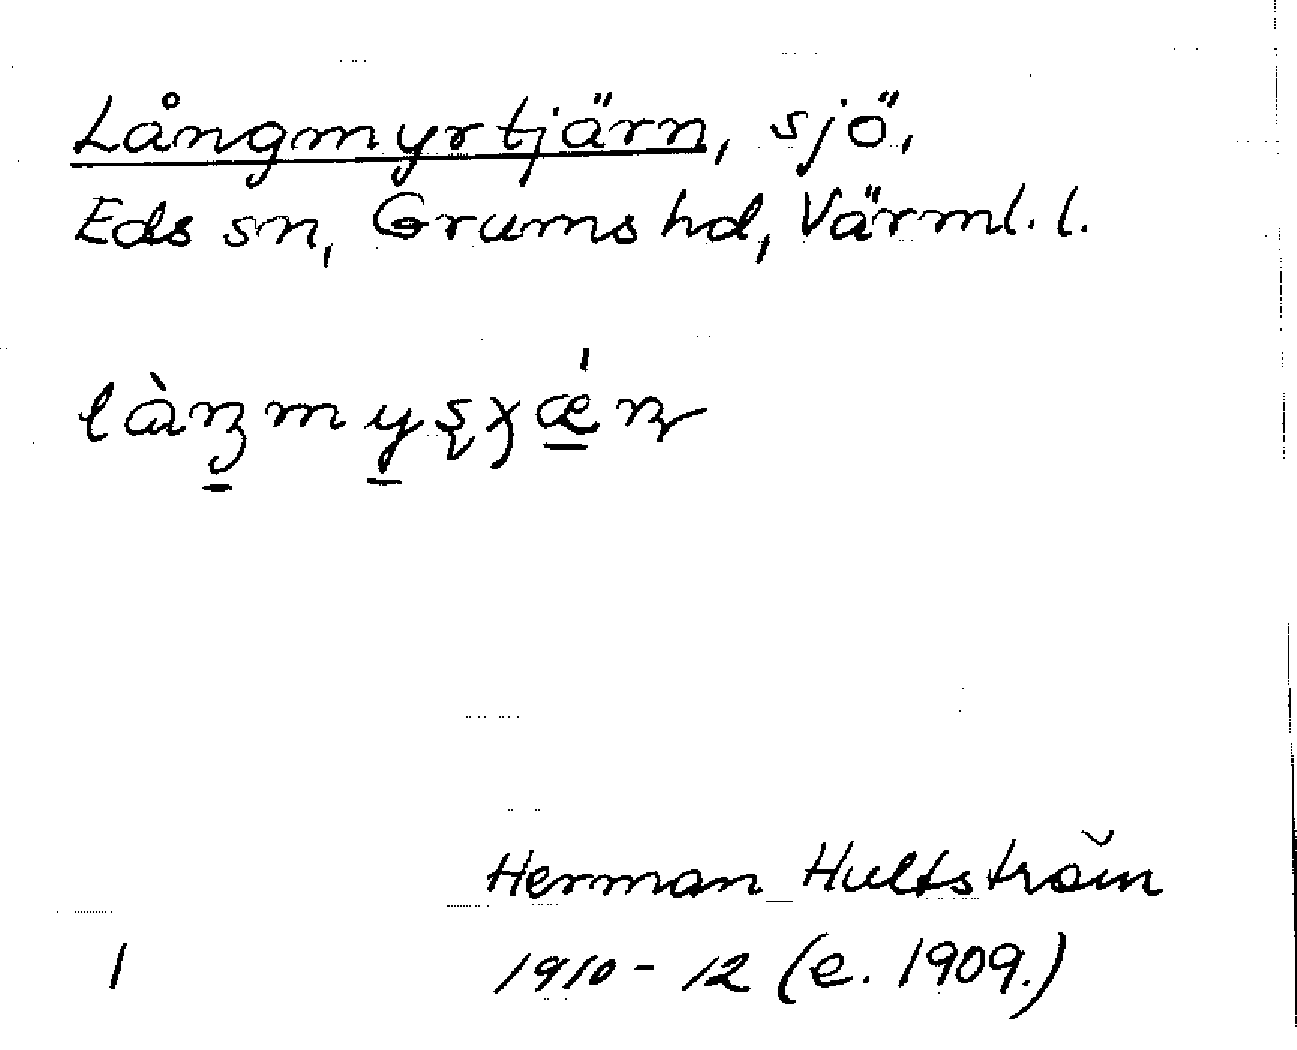 Långmyrtjärn, sjö,
Eds sn, Grums hd, Värml. l.
Herman Hultström
1 1910-12 (e. 1909.)